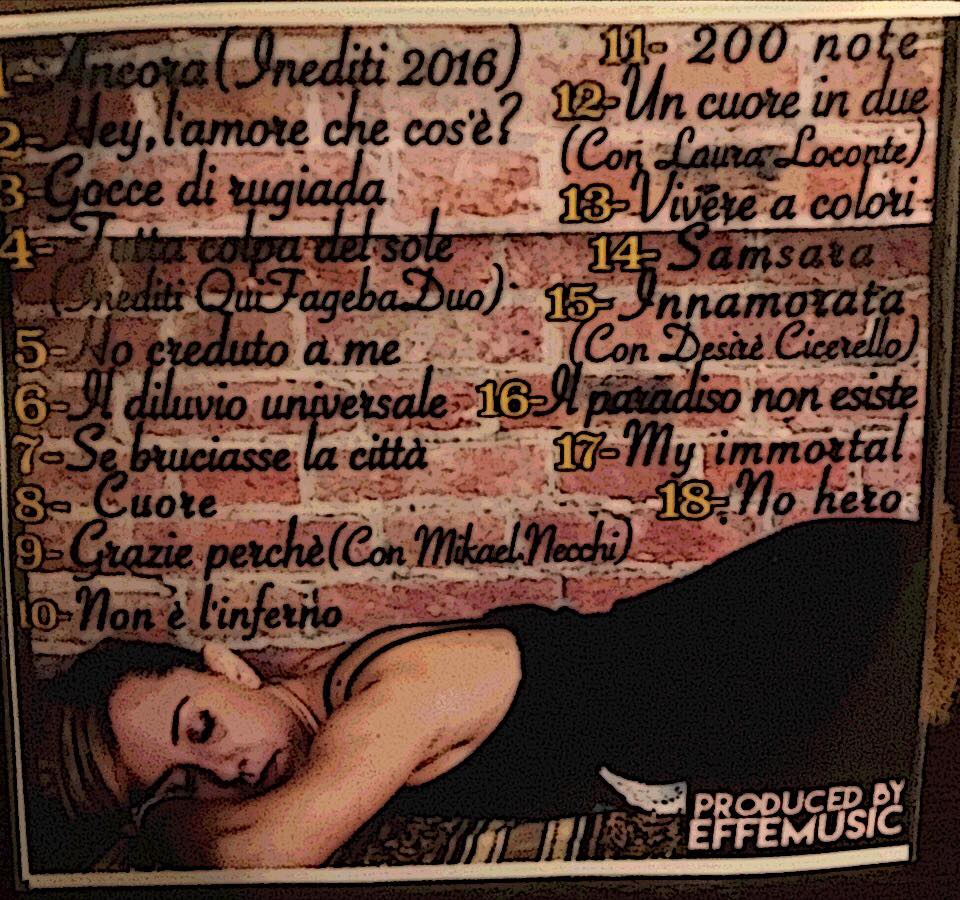 1- Ancora (Inediti 2016)
2- Hey, l'amore che cos'è?
3- Gocce di rugiada
4- Tutta colpa del sole
(Inediti QuiFagebaDuo)
5- Io creduto a me
6- Il diluvio universale
7- Se bruciasse la città
8- Cuore
9- Grazie perchè (Con Mikael Necchi)
10- Non è l'inferno
11- 200 note
12- Un cuore in due
(Con Laura Loconte)
13- Vivere a colori
14- Samsara
15- Innamorata
(Con Desirè Cicerello)
16- Il paradiso non esiste
17- My immortal
18- No hero
PRODUCED BY
EFFEMUSIC